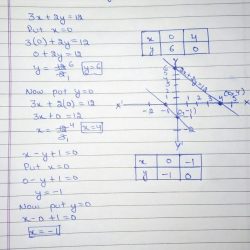 3x+2y=12
Put x=0
3(0)+2y=12
0+2y=12
y=12/2 6 y=6
Now put y=0
3x+2(0)=12
3x+0=12
x=12/3 4 x=4
x-y+1=0
Put x=0
0-y+1=0
y=-1
Now put y=0
x-0+1=0
x=-1
x 0 4
y 6 0
3x+2y=12
x 0 -1
y -1 0